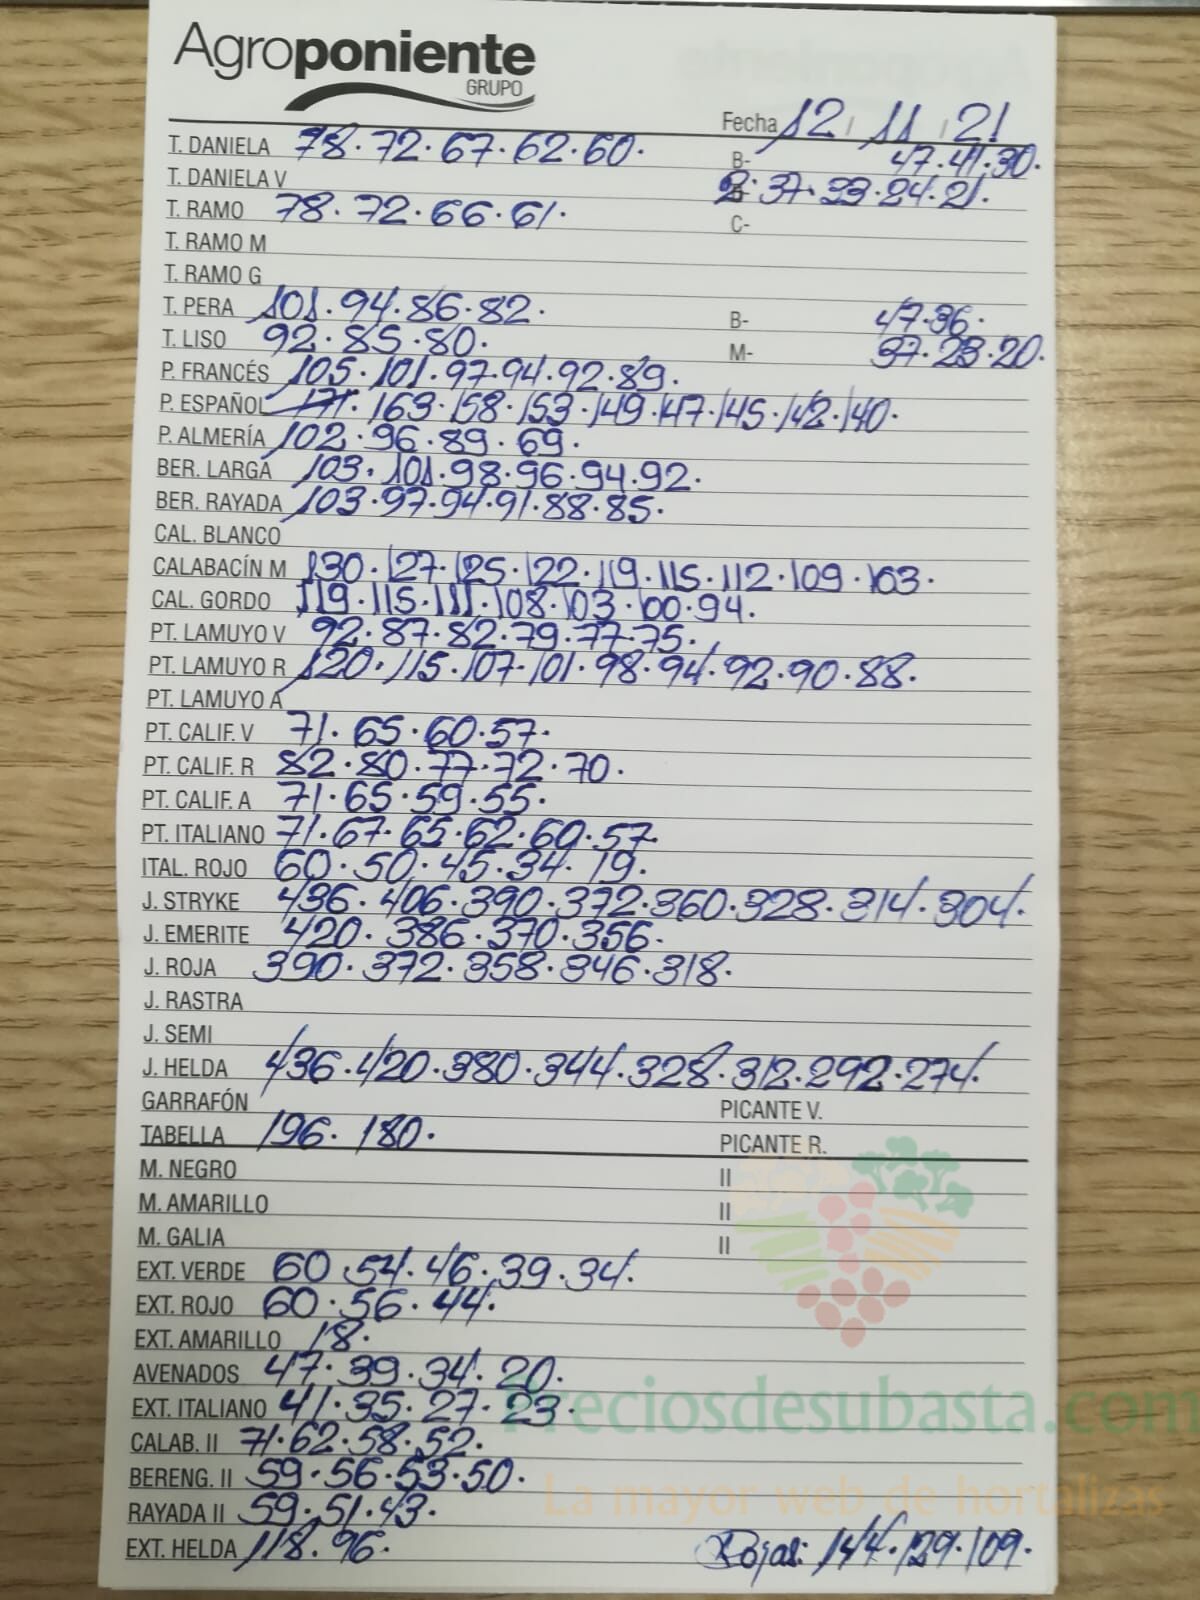 Agroponiente
GRUPO
Fecha 12 / 11 / 21
T. DANELA 78.72.67.62.60. B- 47.41.30.
T. DANIELA V 2.37.33.24.21.
T. RAMO 78.72.66.61. C-
T. RAMO M
T. RAMO G
T. PERA 101.94.86.82. B- 47.36.
T. LISO 92.85.80. M- 37.23.20.
P. FRANCÉS 105.101.97.94.92.89.
P. ESPAÑOL 171.163.158.153.149.147.145.142.140.
P. ALMERÍA 102.96.89.69.
BER. LARGA 103.101.98.96.94.92.
BER. RAYADA 103.97.94.91.88.85.
CAL. BLANCO
CALABACÍN M 130.127.125.122.119.115.112.109.103.
CAL. GORDO 119.115.111.108.103.100.94.
PT. LAMUYO V 92.87.82.79.77.75.
PT. LAMUYO R 120.115.107.101.98.94.92.90.88.
PT. LAMUYO A
PT. CALIF. V 71.65.60.57.
PT. CALIF. R 82.80.77.72.70.
PT. CALIF. A 71.65.59.55.
PT. ITALIANO 71.67.65.62.60.57.
ITAL. ROJO 60.50.45.34.19.
J. STRYKE 436.406.390.372.360.328.314.304.
J. EMERITE 420.386.370.356.
J. ROJA 390.372.358.346.318.
J. RASTRA
J. SEMI
J. HELDA 436.420.380.344.328.312.292.274.
GARRAFÓN PICANTE V.
TABELLA 196.180. PICANTE R.
M. NEGRO II
M. AMARILLO II
M. GALIA II
EXT. VERDE 60.54.46.39.34.
EXT. ROJO 60.56.44.
EXT. AMARILLO 18.
AVENADOS 47.39.34.20.
EXT. ITALIANO 41.35.27.23.
Preciosdesubasta.com
CALAB. II 71.62.58.52.
BERENG. II 59.56.53.50.
La mayor web de hortalizas
RAYADA II 59.51.43.
EXT. HELDA 118.96. Rojas: 144.129.109.